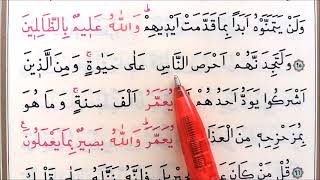 وَلَنْ يَتَمَنَّوْهُ اَبَدًا بِمَا قَدَّمَتْ اَيْدٖيهِمْؕ وَاللّٰهُ عَلٖيمٌ بِالظَّالِمٖينَ
﴿٩٥﴾ وَلَتَجِدَنَّهُمْ اَحْرَصَ النَّاسِ عَلٰى حَيٰوةٍۚ وَمِنَ الَّذٖينَ
اَشْرَكُوا يَوَدُّ اَحَدُهُمْ يُعَمَّرُ اَلْفَ سَنَةٍۚ وَمَا هُوَ
بِمُزَحْزِحِهٖ مِنَ الْعَذَابِ يُعَمَّرَؕ وَاللّٰهُ بَصٖيرٌ بِمَا يَعْمَلُونَ
﴿٩٦﴾ قُلْ مَنْ كَانَ فَاِنَّهُ نَزَّلَهُ عَلٰى قَلْبِكَ